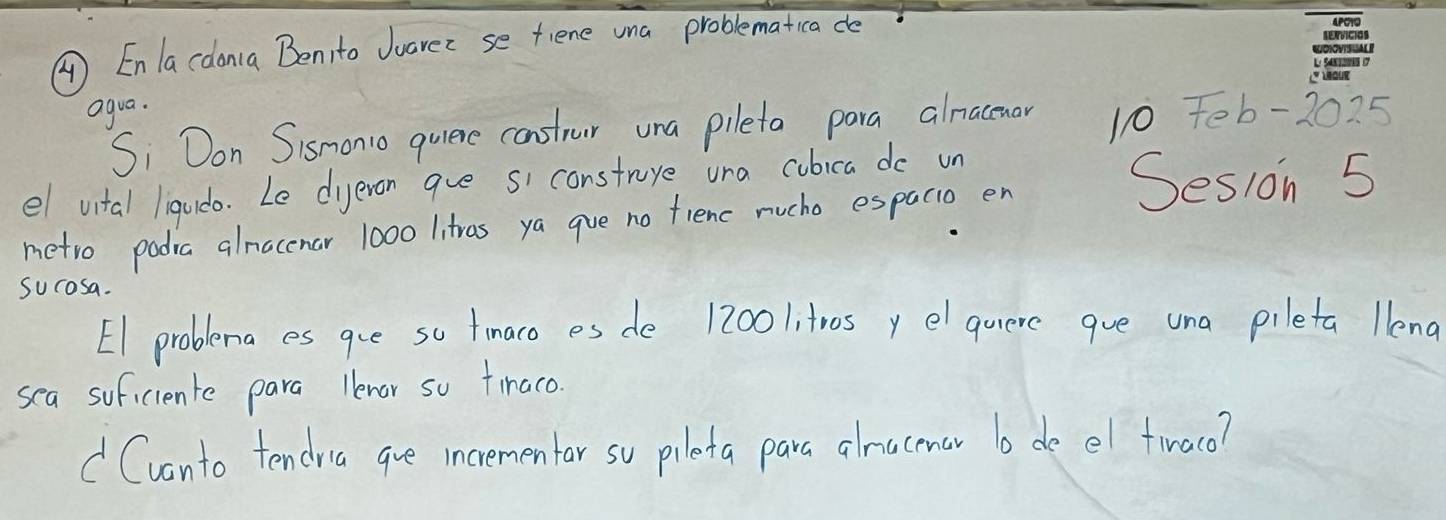 ④ En la colonia Benito Juarez se tiene una problematica de
agua.
Si Don Sismonio quiere construir una pileta para almacenar
el vital liquido. Le dijeron que si construye una cubica de un
metro podia almacenar 1000 litros ya que no tiene mucho espacio en
su casa.
El problema es que su tinaco es de 1200 litros y el quiere que una pileta llena
sea suficiente para llenar su tinaco.
¿Cuanto tendria que incrementar su pileta para almacenar lo de el tinaco?
APOYO
SERVICIOS
10 Feb-2025
Sesión 5